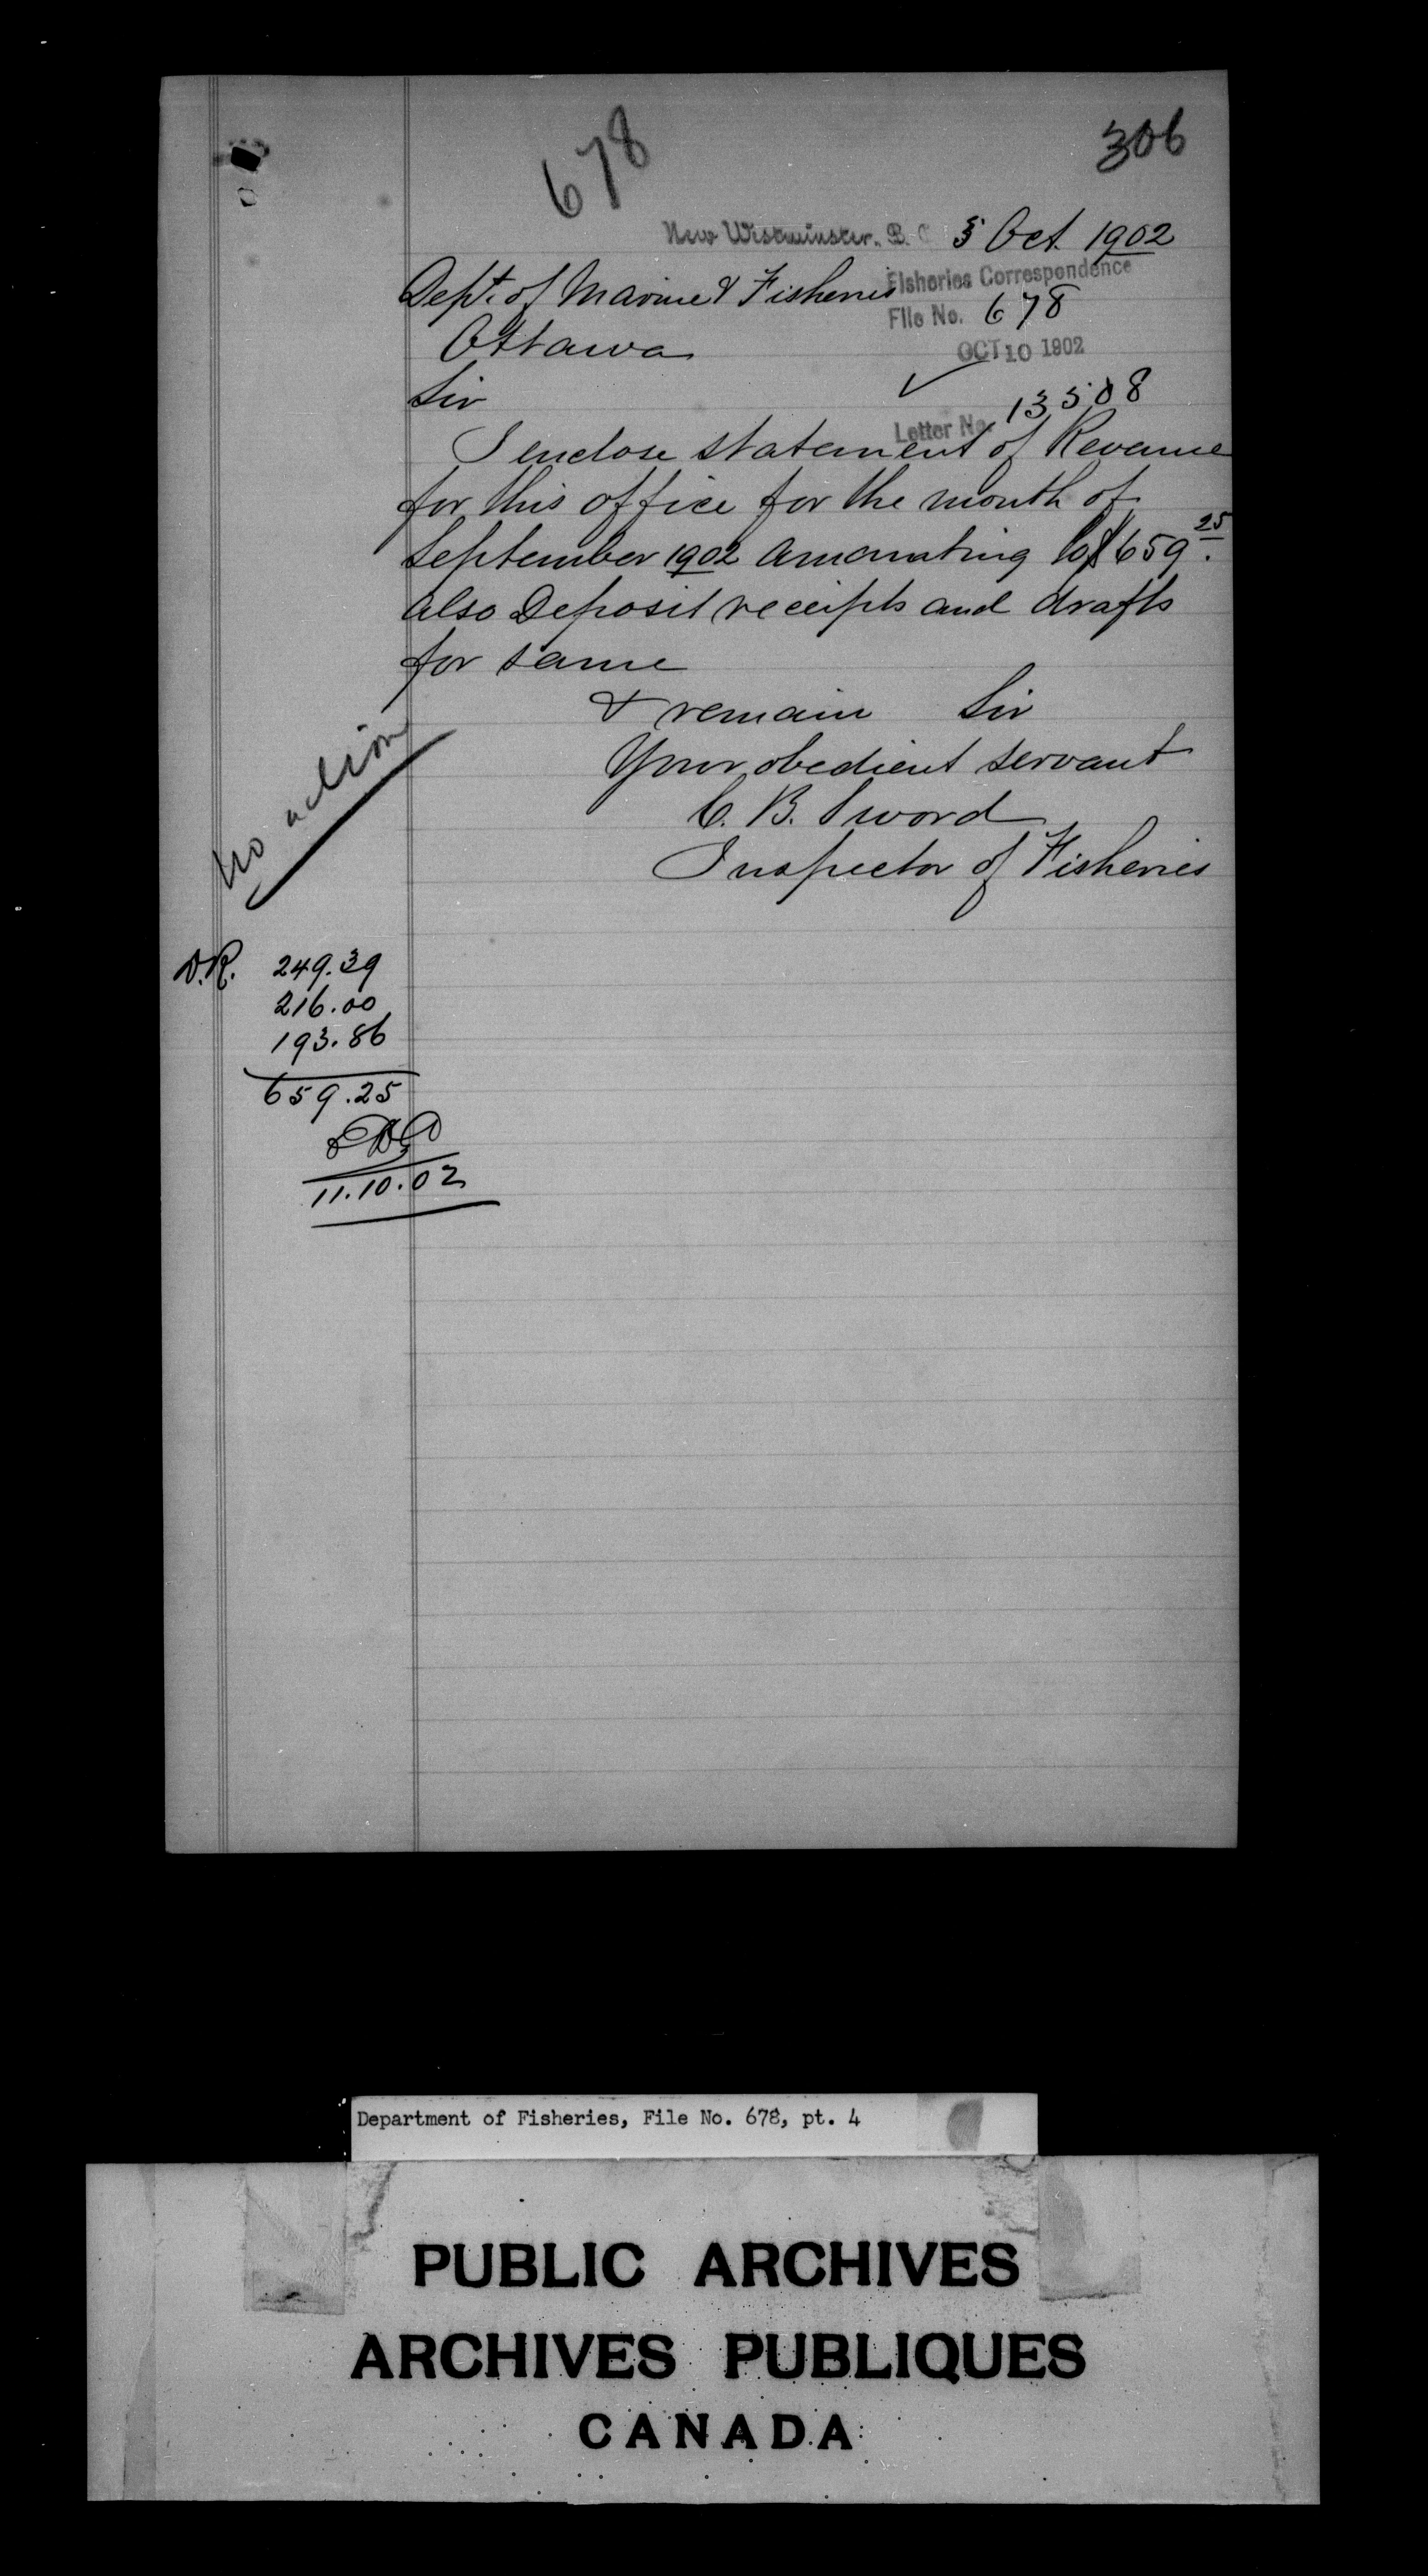 678
306
New Westminster, B. C. Oct. 1902
Dept. of Marine & Fisheries
Fisheries Correspondence
File No. 678
Ottawa
OCT 10 1902
Sir
Letter No. 13508
I enclose statement of Revenue
for this office for the month of
September 1902 amounting to $659.25
also Deposit receipts and drafts
for same
& remain Sir
Your obedient servant
C. B. Sword
Inspector of Fisheries
No action
D.R. 249.39
216.00
193.86
659.25
11.10.02
Department of Fisheries, File No. 678, pt. 4
PUBLIC ARCHIVES
ARCHIVES PUBLIQUES
CANADA